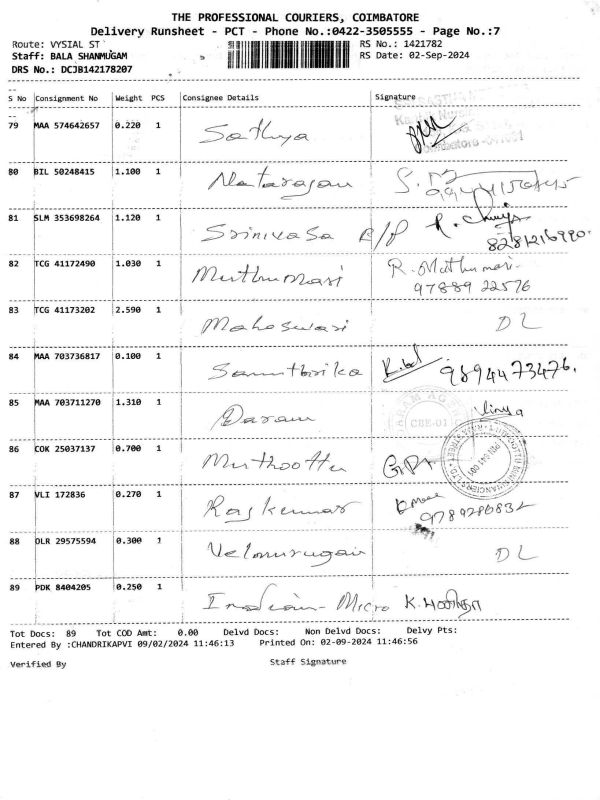 THE PROFESSIONAL COURIERS, COIMBATORE
Delivery Runsheet - PCT - Phone No.:0422-3505555 - Page No.:7
Route: VYSIAL ST RS No.: 1421782
Staff: BALA SHANMUGAM RS Date: 02-Sep-2024
DRS No.: DCJB142178207
S No Consignment No Weight PCS Consignee Details Signature
79 MAA 574642657 0.220 1 Sathya
80 BIL 50248415 1.100 1 Natarajan
81 SLM 353698264 1.120 1 Srinivasa E/P
8281216990.
82 TCG 41172490 1.030 1 Muthumari R. Muthumari.
97889 22576
83 TCG 41173202 2.590 1 Maheswari DL
84 MAA 703736817 0.100 1 Samithrika 9894473476.
85 MAA 703711270 1.310 1 Daram CBE-01
86 COK 25037137 0.700 1 Muthoottu
87 VLI 172836 0.270 1 Rajkumar
9789280832
88 OLR 29575594 0.300 1 Velmurugan DL
89 PDK 8404205 0.250 1 Indian - Micro
Tot Docs: 89 Tot COD Amt: 0.00 Delvd Docs: Non Delvd Docs: Delvy Pts:
Entered By :CHANDRIKAPVI 09/02/2024 11:46:13 Printed On: 02-09-2024 11:46:56
Verified By Staff Signature